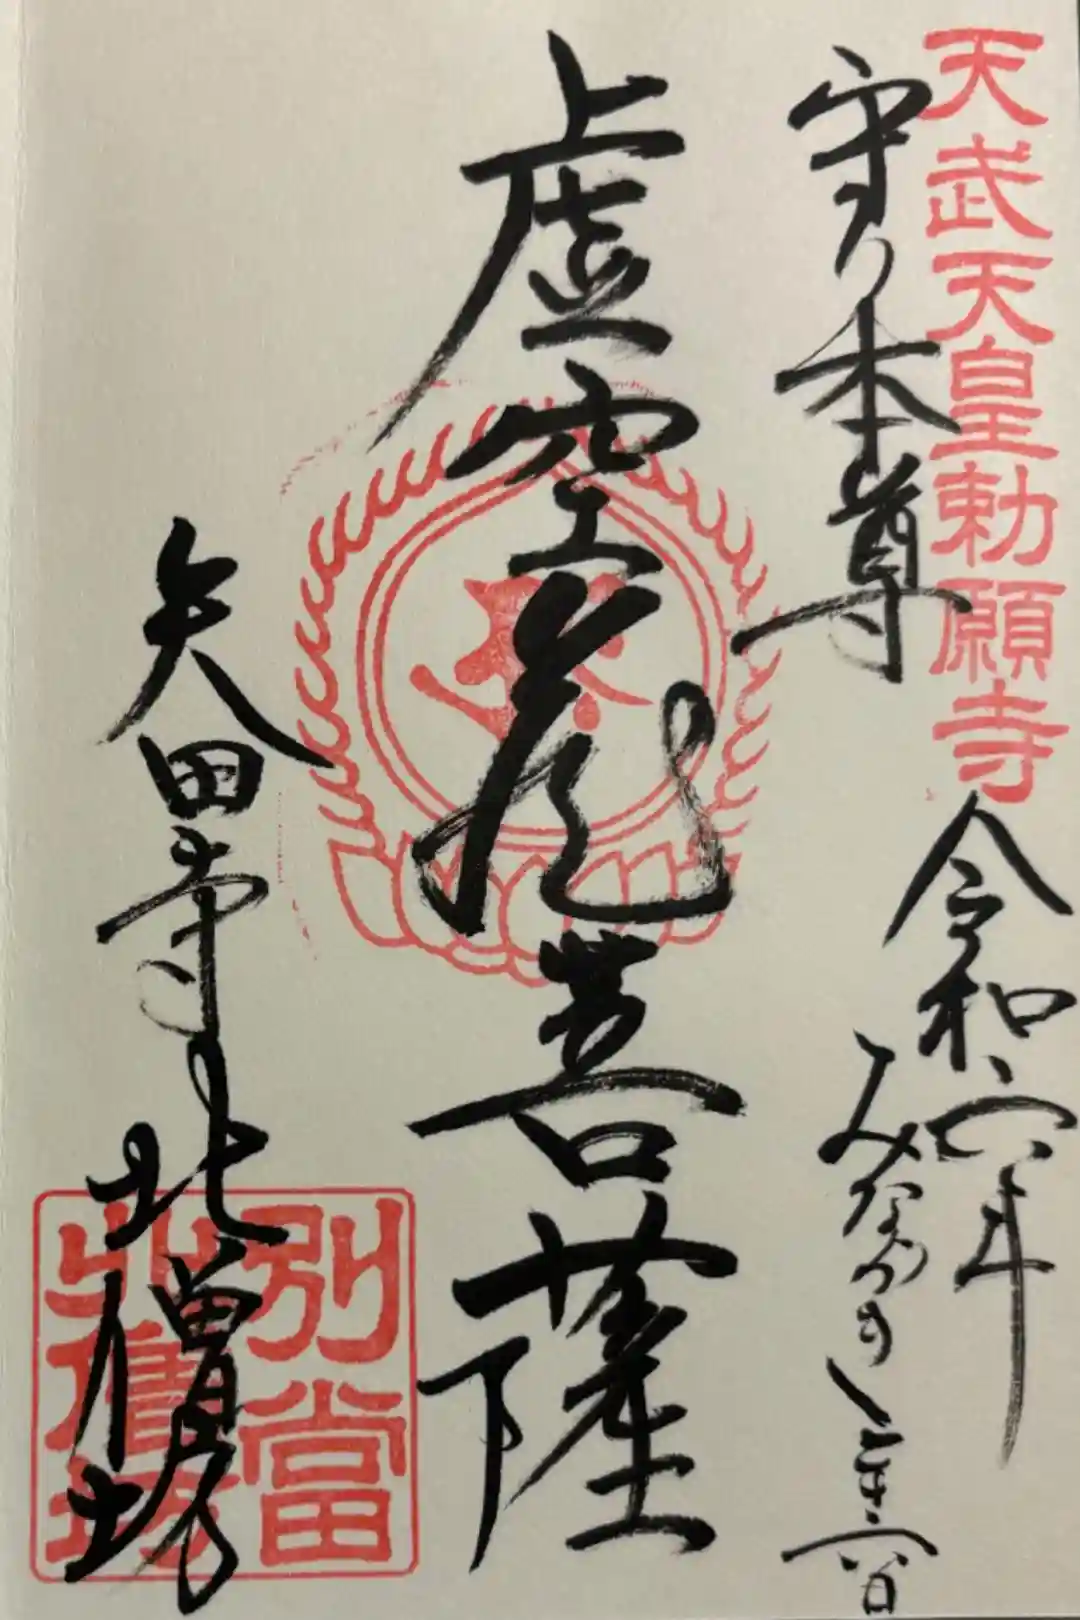 天武天皇勅願寺
守り本尊
令和六年
みなつき二十六日
虚空蔵菩薩
矢田寺北僧坊
別當
北僧坊